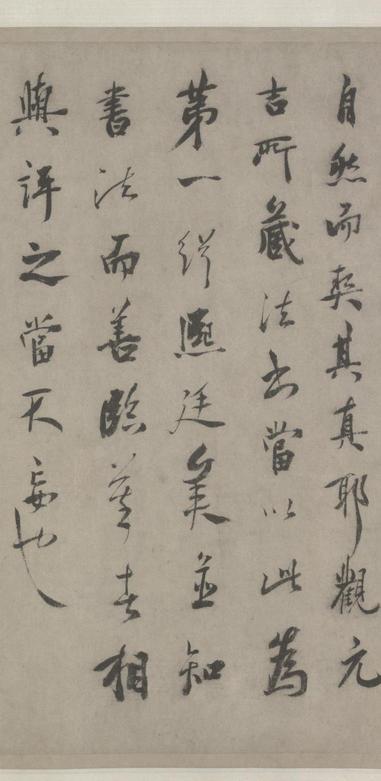 自然而契其真耶觀元
吉所藏法書當以此為
第一繹熙廷美並知
書法而善臨摹春相
與評之當不妄也